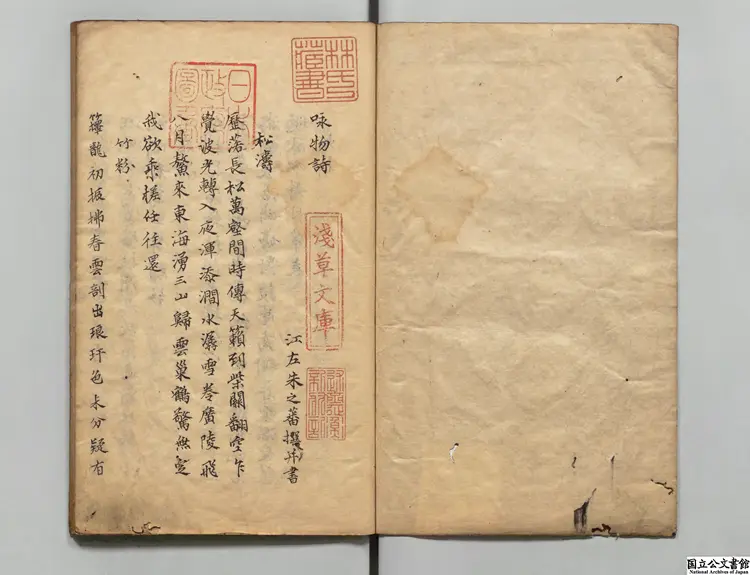 林氏藏書
咏物詩
淺草文庫
江左朱之蕃撰并書
日本政府圖書
松濤
歷落長松萬壑間時傳天籟到柴關翻空乍
覺波光轉入夜渾添澗水潺雪卷廣陵飛
八月鰲來東海湧三山歸雲巢鶴驚無定
我欲乘槎任往還
竹粉
籜龍初扳拂春雲剖出琅玕色未分疑有
国立公文書館
National Archives of Japan